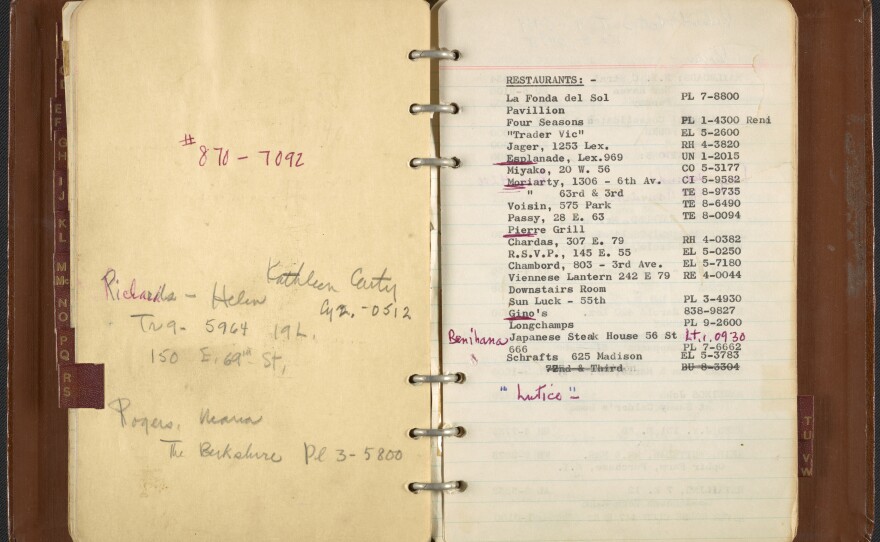 E
F
G
H
I
J
K
L
M
Mc
N
O
P
Q
R
S
#
870 - 7092
Richards - Helen
Kathleen Carty
Cy 2. - 0512
Tr 9 - 5964 19L.
150 E. 69th St,
Rogers, Maria
The Berkshire Pl 3 - 5800
RESTAURANTS: -
La Fonda del Sol PL 7-8800
Pavillion
Four Seasons PL 1-4300 Reni
"Trader Vic" EL 5-2600
Jager, 1253 Lex. RH 4-3820
Esplanade, Lex.969 UN 1-2015
Miyako, 20 W. 56 CO 5-3177
Moriarty, 1306 - 6th Av. CI 5-9582
" 63rd & 3rd TE 8-9735
Voisin, 575 Park TE 8-6490
Passy, 28 E. 63 TE 8-0094
Pierre Grill
Chardas, 307 E. 79 RH 4-0382
R.S.V.P., 145 E. 55 EL 5-0250
Chambord, 803 - 3rd Ave. EL 5-7180
Viennese Lantern 242 E 79 RE 4-0044
Downstairs Room
Sun Luck - 55th PL 3-4930
Gino's 838-9827
Longchamps PL 9-2600
Benihana Japanese Steak House 56 St Lt.1.0930
666 PL 7-6662
Schrafts 625 Madison EL 5-3783
72nd & Third BU 8-3304
"Lutice"-
T
U
V
W